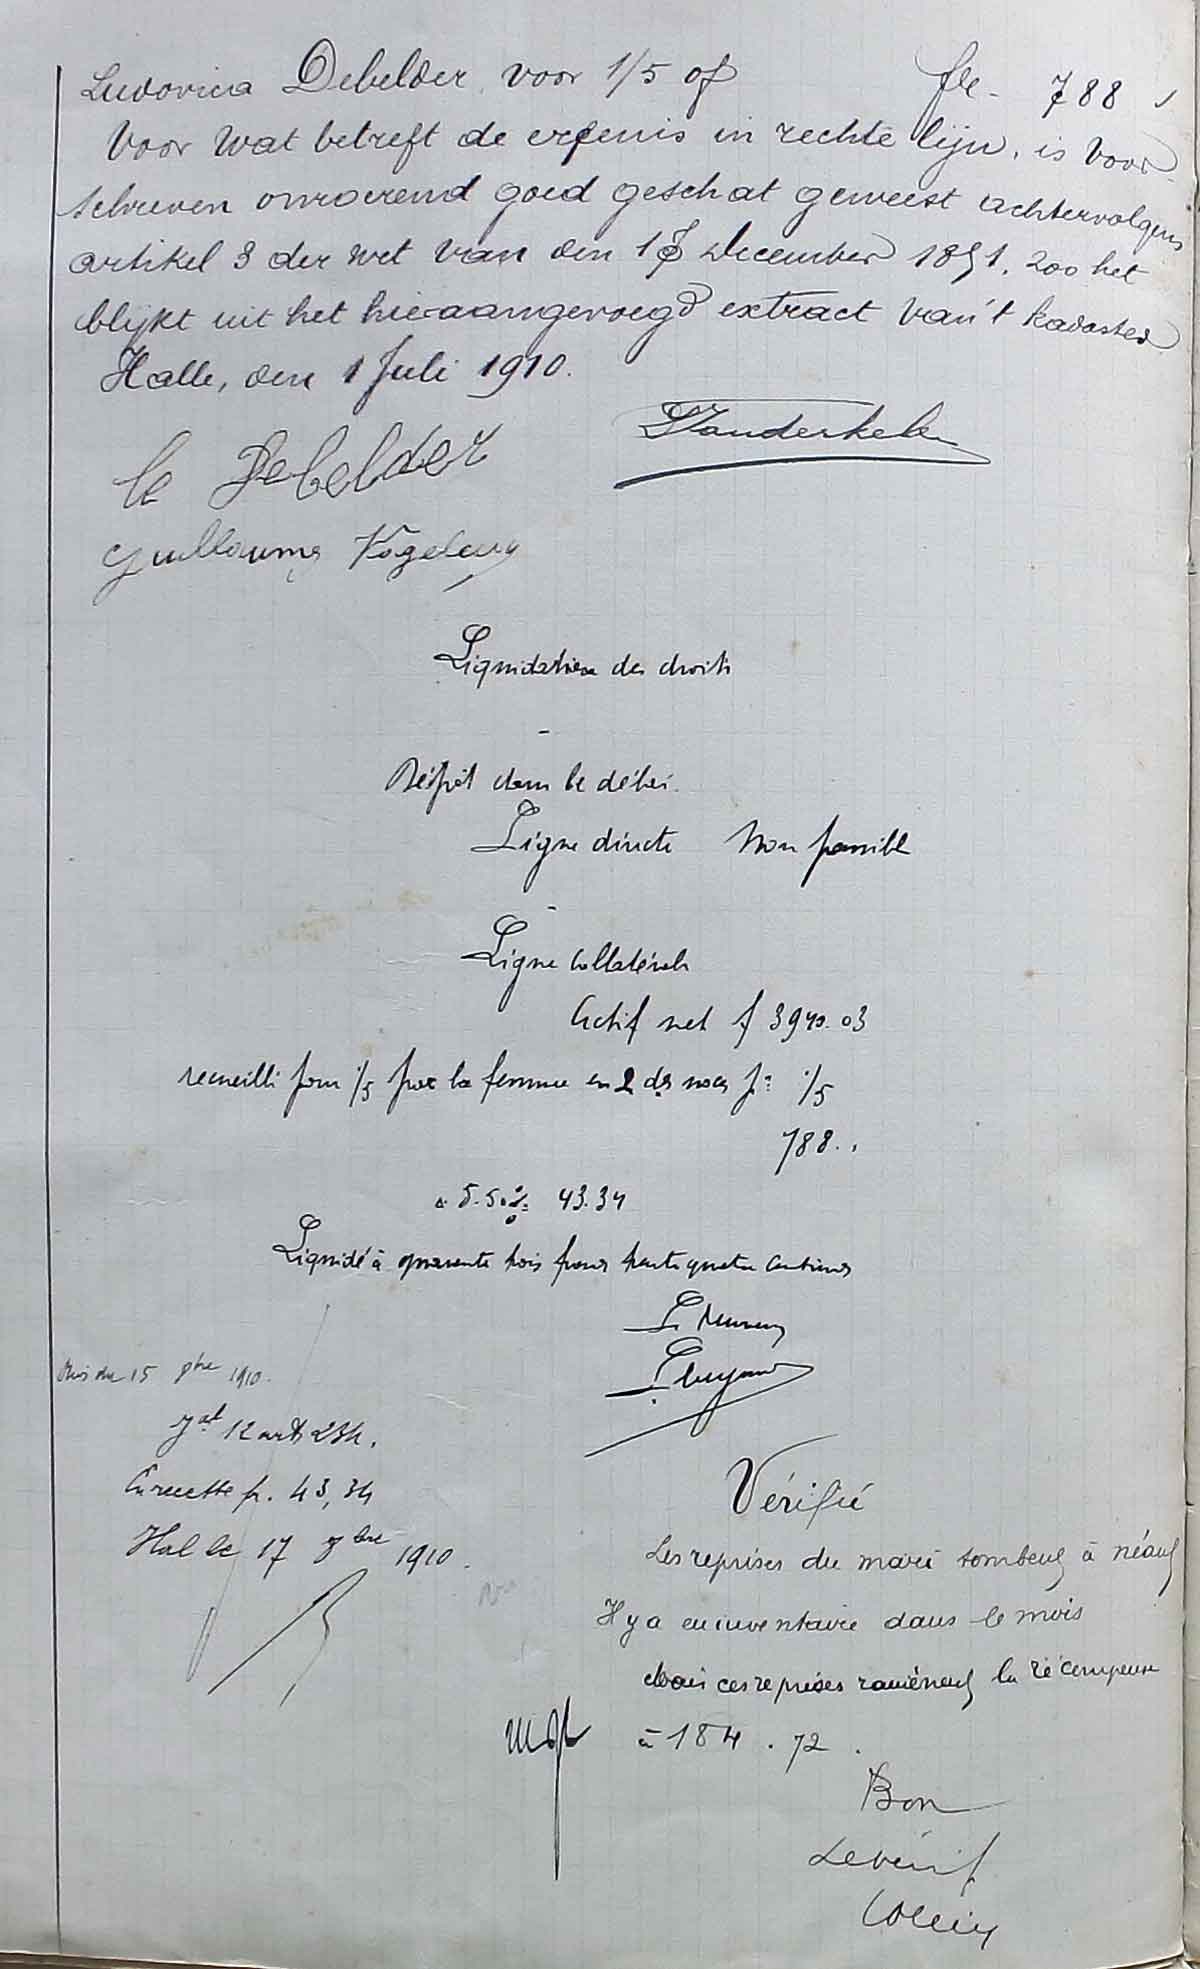 Ludovica Debelder, voor 1/5 of fr. 788
Voor wat betreft de erfenis in rechte lijn, is voor-
schreven onroerend goed geschat geweest achtervolgens
artikel 3 der wet van den 17 December 1851, zoo het
blijkt uit het hieraangevoegd extract van't kadaster
Halle, den 1 Juli 1910.
Vanderkelen
Debelder
Guillaume
Liquidation des droits
Dépôt dans le délai.
Ligne directe Non passible
Ligne collatérale
Actif net f 3940.03
recueilli pour 1/5 par la femme en 2des noces pr 1/5
788.
à 5.50% 43.34
Liquidé à quarante trois francs trente quatre centimes
Le Receveur
15 9bre 1910.
12 art 234.
En recette fr. 43,34
Hal le 17 9bre 1910.
Vérifié
Les reprises du mari tombent à néant
Il y a eu inventaire dans le mois
Mais ces reprises ramènent la récompense
à 184.72.
Bon
Le vérif